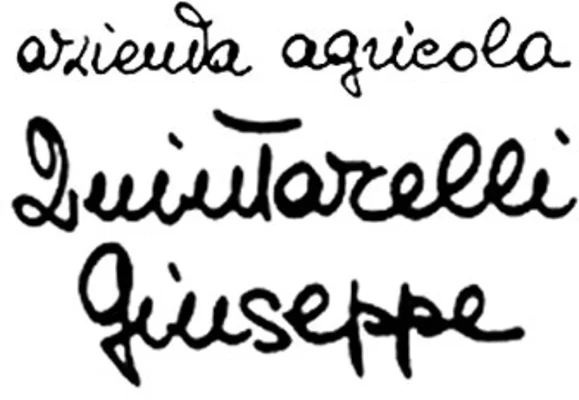 azienda agricola
Quintarelli
Giuseppe